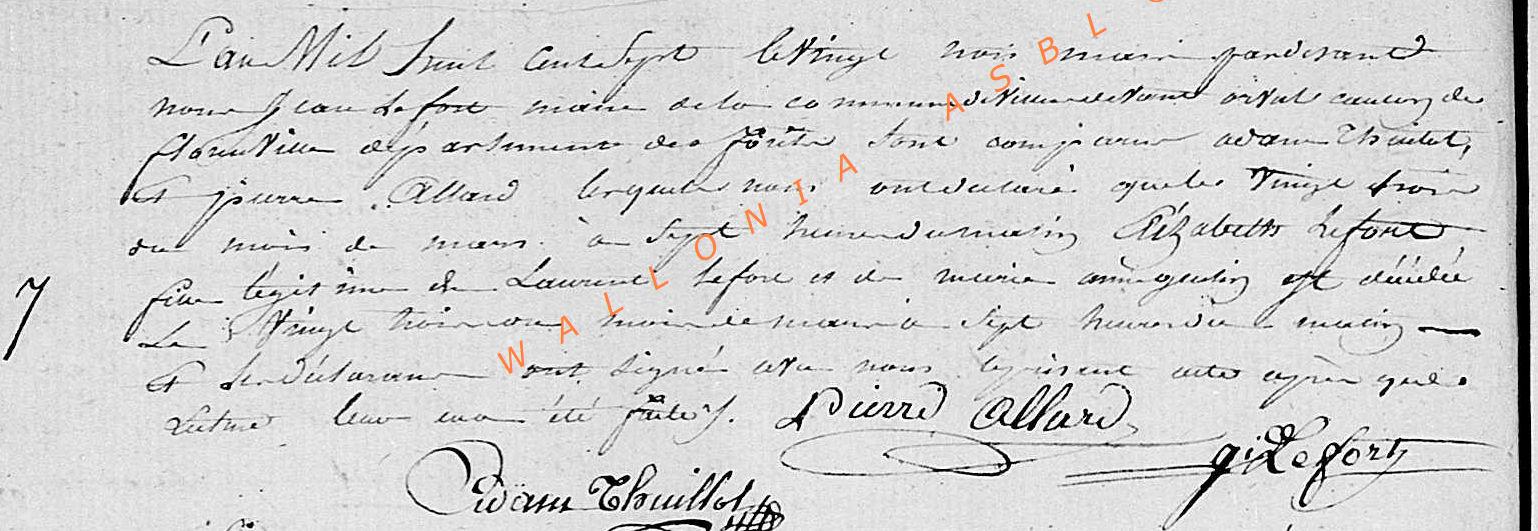 L'an Mil huit cent sept le vingt trois mars pardevant
nous Jean Lefort maire de la commune de Villers devant orval canton de
florenville département des forêts sont comparu adam Thuilot,
et pierre Allard lesquels nous ont declaré que le Vingt trois
du mois de mars à sept heure du matin Elizabeth Lefort
fille légitime de Laurent Lefort et de marie est décédée
Le Vingt trois du mois de mars à sept heures du matin
7
et les déclarans ont signé avec nous le présent acte après que
Lecture leur en a été faite /. Pierre Allard
gi Lefort
Adam Thuillot
WALLONIA ASBL